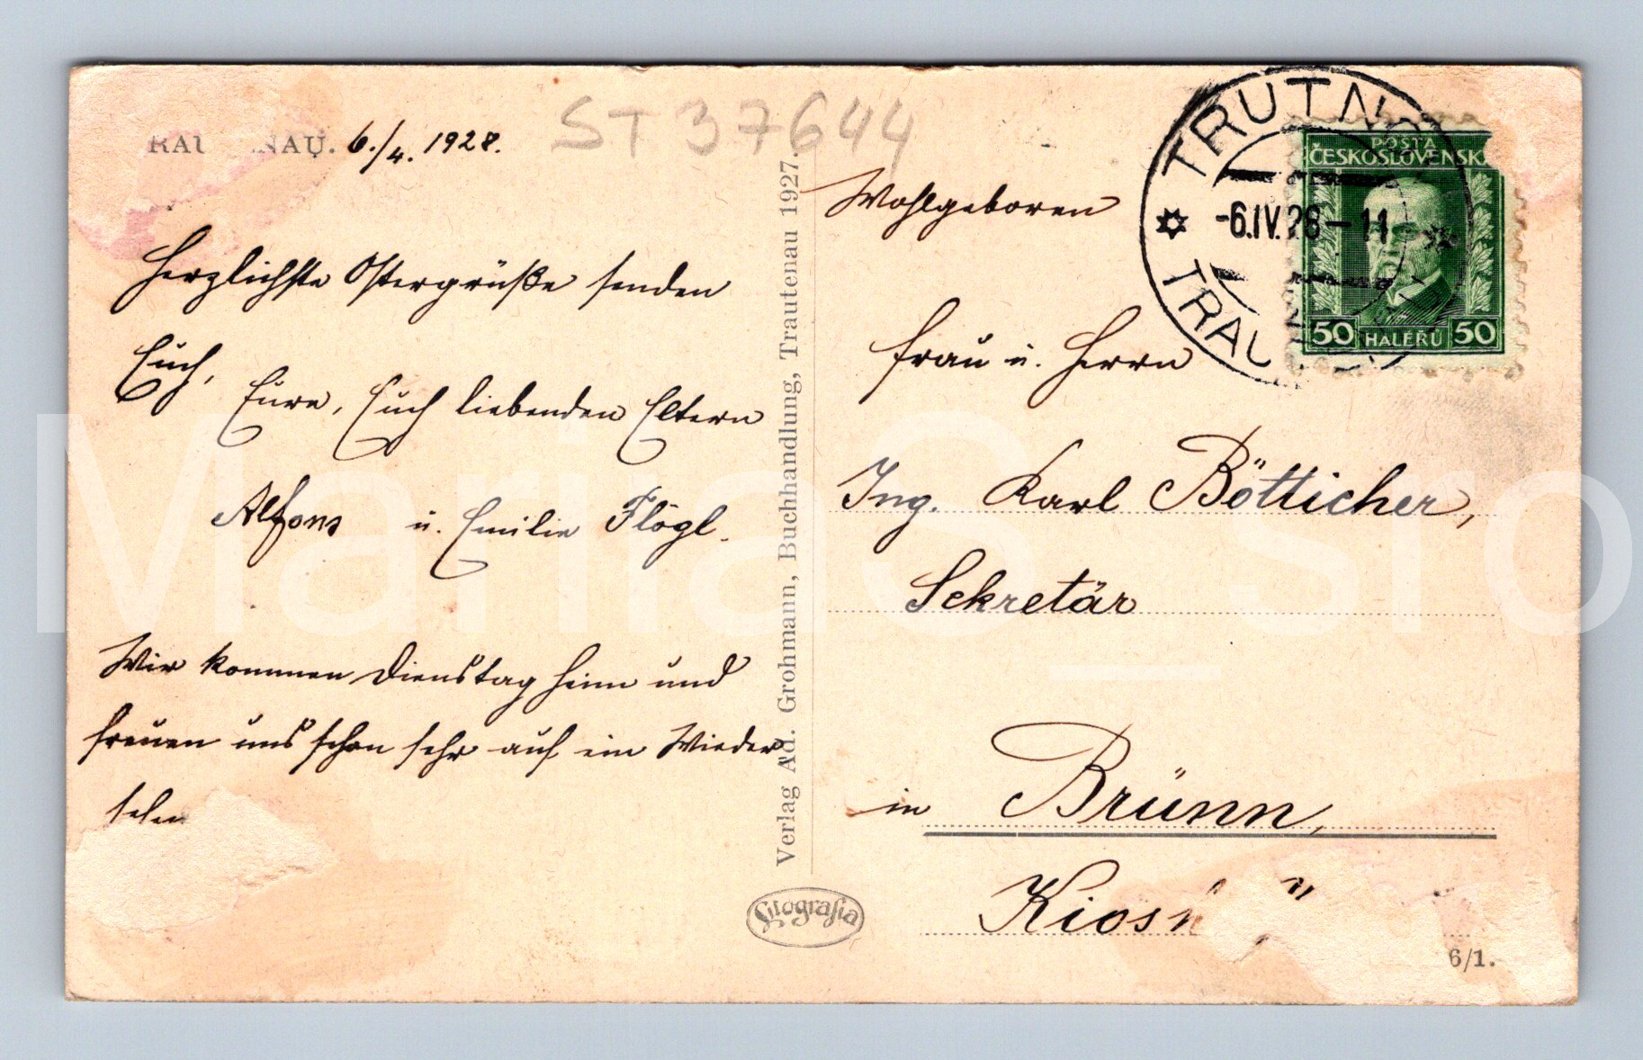 6./4. 1928.
ST 37644
Herzlichste Ostergrüße senden
Euch,
Eure, Euch liebenden Eltern
Alfons u. Emilie Flögl.
Wir kommen Dienstag heim und
freuen uns schon sehr auf ein Wieder
sehen
Verlag Ad. Grohmann, Buchhandlung, Trautenau 1927.
Litografia
TRUTNO
POSTA
ČESKOSLOVENSK
-6.IV.28-11
TRAU
50 HALÉŘŮ 50
Wohlgeboren
Frau u. Herrn
Ing. Karl Bötticher,
Sekretär
in Brünn,
6/1.